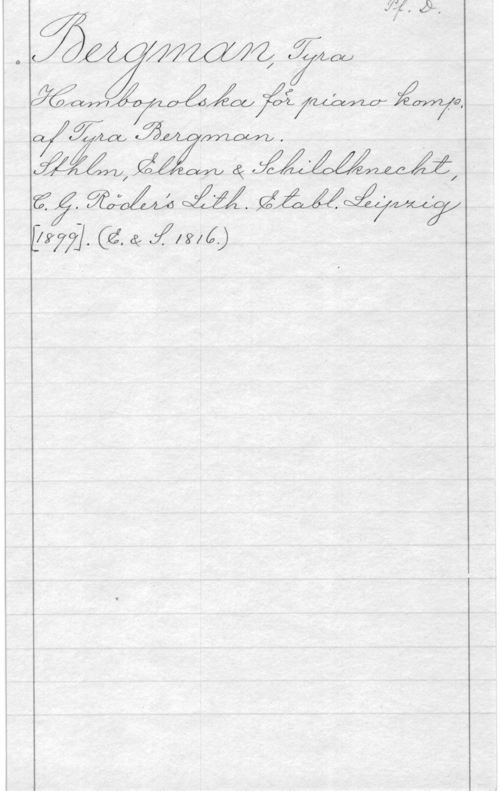 Pf. D.
Bergman, Tyra
Hambopolska för piano komp.
af Tyra Bergman.
Sthlm, Elkan & Schildknecht,
C. G. Röder's Lith. Etabl. Leipzig
[1899]. (E. & S. 1816.)